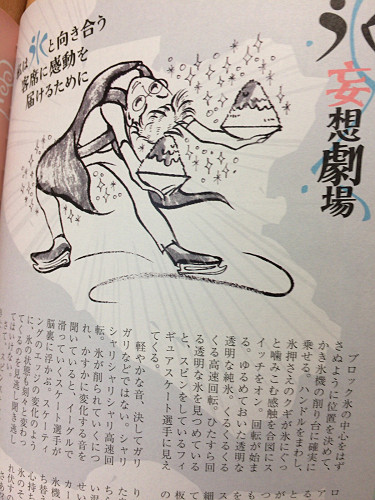 氷
妄想劇場
私は氷と向き合う
客席に感動を
届けるために
ブロック氷の中心をはず
さぬように位置を決めて、
かき氷機の削り台に確実に
乗せる。ハンドルをまわし、
氷押さえのクギが氷にぐっ
と噛みこむ感触を合図にス
イッチをオン。回転が始ま
る。ゆるめておいた透明な
透明な純氷。くるくるくる
くる高速回転。ひたすら回
る透明な氷を見つめている
と、スピンをしているフィ
ギュアスケート選手に見え
てくる。
軽やかな音、決してガリ
ガリなどではない、シャリ
シャリシャリシャリ高速回
転。氷が削られていくにつ
れ、かすかに変化する音を
聞いていると、
滑っていくスケート選手が
脳裏に浮かぶ。スケーティ
ングのエッジの変化のよう
に、氷の状態も刻々と変わっ
てくるのを見逃し聞き逃し
てはいけない。